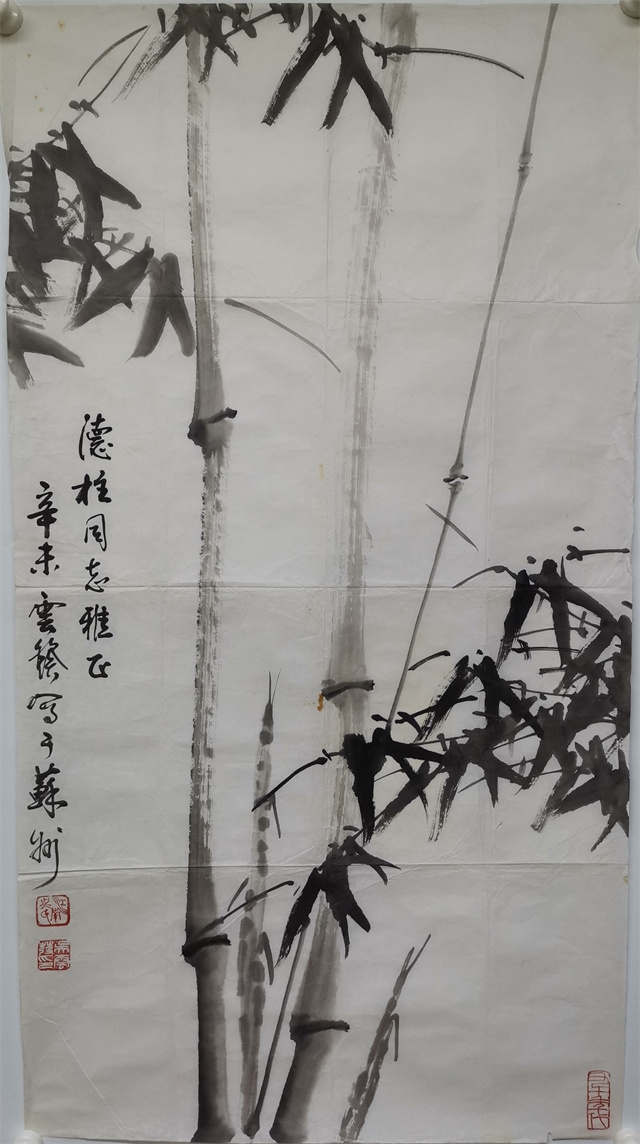 德柱同志雅正
辛未雲寫于蘇州